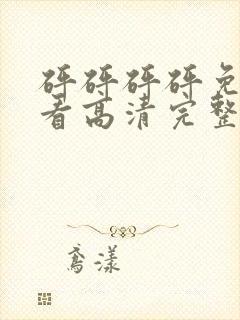 砰砰砰砰免
看高清完整
鸢漾